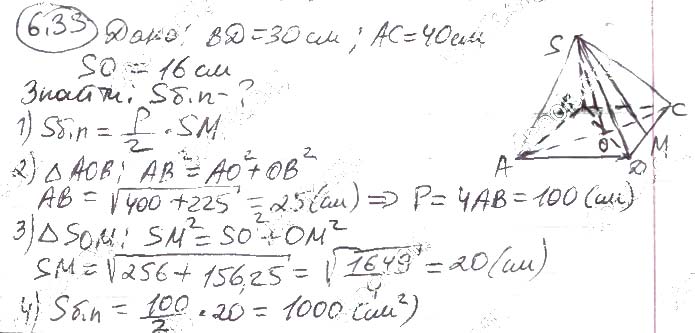 6.33 Дано: BD=30см; AC=40см
SO = 16см
Знайти: Sб.п-?
1) Sб.п = P/2 · SM
2) △AOB: AB² = AO² + OB²
AB = √400+225 = 25(см) => P = 4AB = 100(см)
3) △SOM: SM² = SO² + OM²
SM = √256 + 156,25 = √1649/4 = 20(см)
4) Sб.п = 100/2 · 20 = 1000(см²)
S
C
M
O
A
D